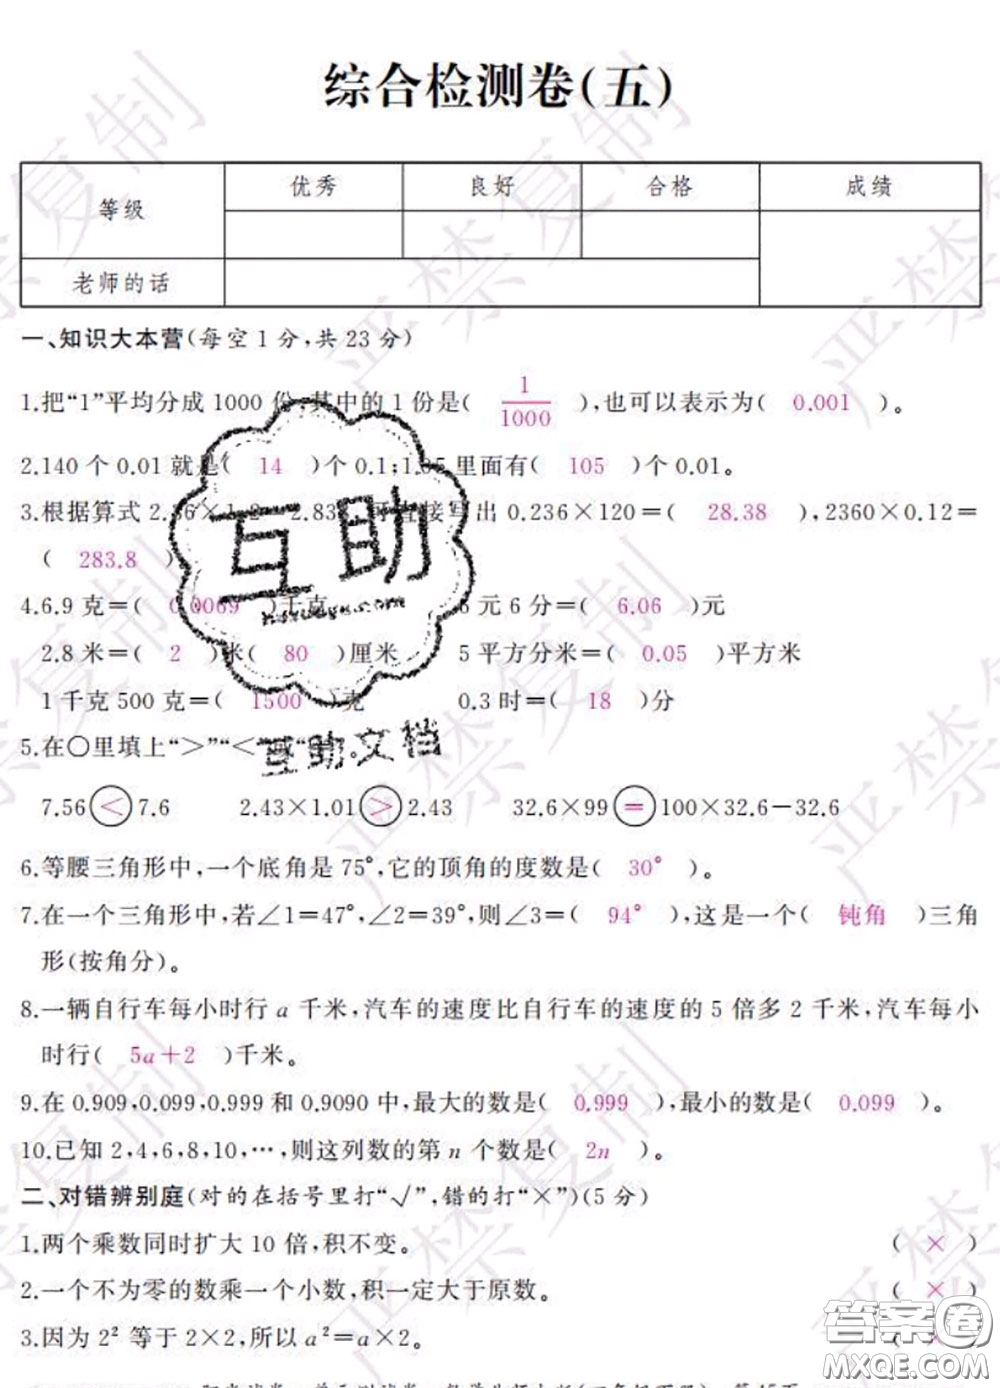 综合检测卷(五)
等级 优秀 良好 合格 成绩
老师的话
一、知识大本营(每空1分,共23分)
1.把“1”平均分成1000份,其中的1份是( 1/1000 ),也可以表示为( 0.001 )。
2.140个0.01就是( 14 )个0.1;1.05里面有( 105 )个0.01。
3.根据算式2.36×1.2=2.83 可直接写出0.236×120=( 28.38 ),2360×0.12=
( 283.8 )
4.6.9克=( 0.0069 )千克 6元6分=( 6.06 )元
2.8米=( 2 )米( 80 )厘米 5平方分米=( 0.05 )平方米
1千克500克=( 1500 )克 0.3时=( 18 )分
5.在○里填上“>”“<”或“ ”。
7.56<7.6 2.43×1.01>2.43 32.6×99=100×32.6-32.6
6.等腰三角形中,一个底角是75°,它的顶角的度数是( 30° )。
7.在一个三角形中,若∠1=47°,∠2=39°,则∠3=( 94° ),这是一个( 钝角 )三角
形(按角分)。
8.一辆自行车每小时行a千米,汽车的速度比自行车的速度的5倍多2千米,汽车每小
时行( 5a+2 )千米。
9.在0.909,0.099,0.999和0.9090中,最大的数是( 0.999 ),最小的数是( 0.099 )。
10.已知2,4,6,8,10,…,则这列数的第n个数是( 2n )。
二、对错辨别庭(对的在括号里打“√”,错的打“×”)(5分)
1.两个乘数同时扩大10倍,积不变。 ( × )
2.一个不为零的数乘一个小数,积一定大于原数。 ( × )
3.因为2²等于2×2,所以a²=a×2。 ( × )
互助
互助文档
严禁复制
答案圈
MXQE.COM